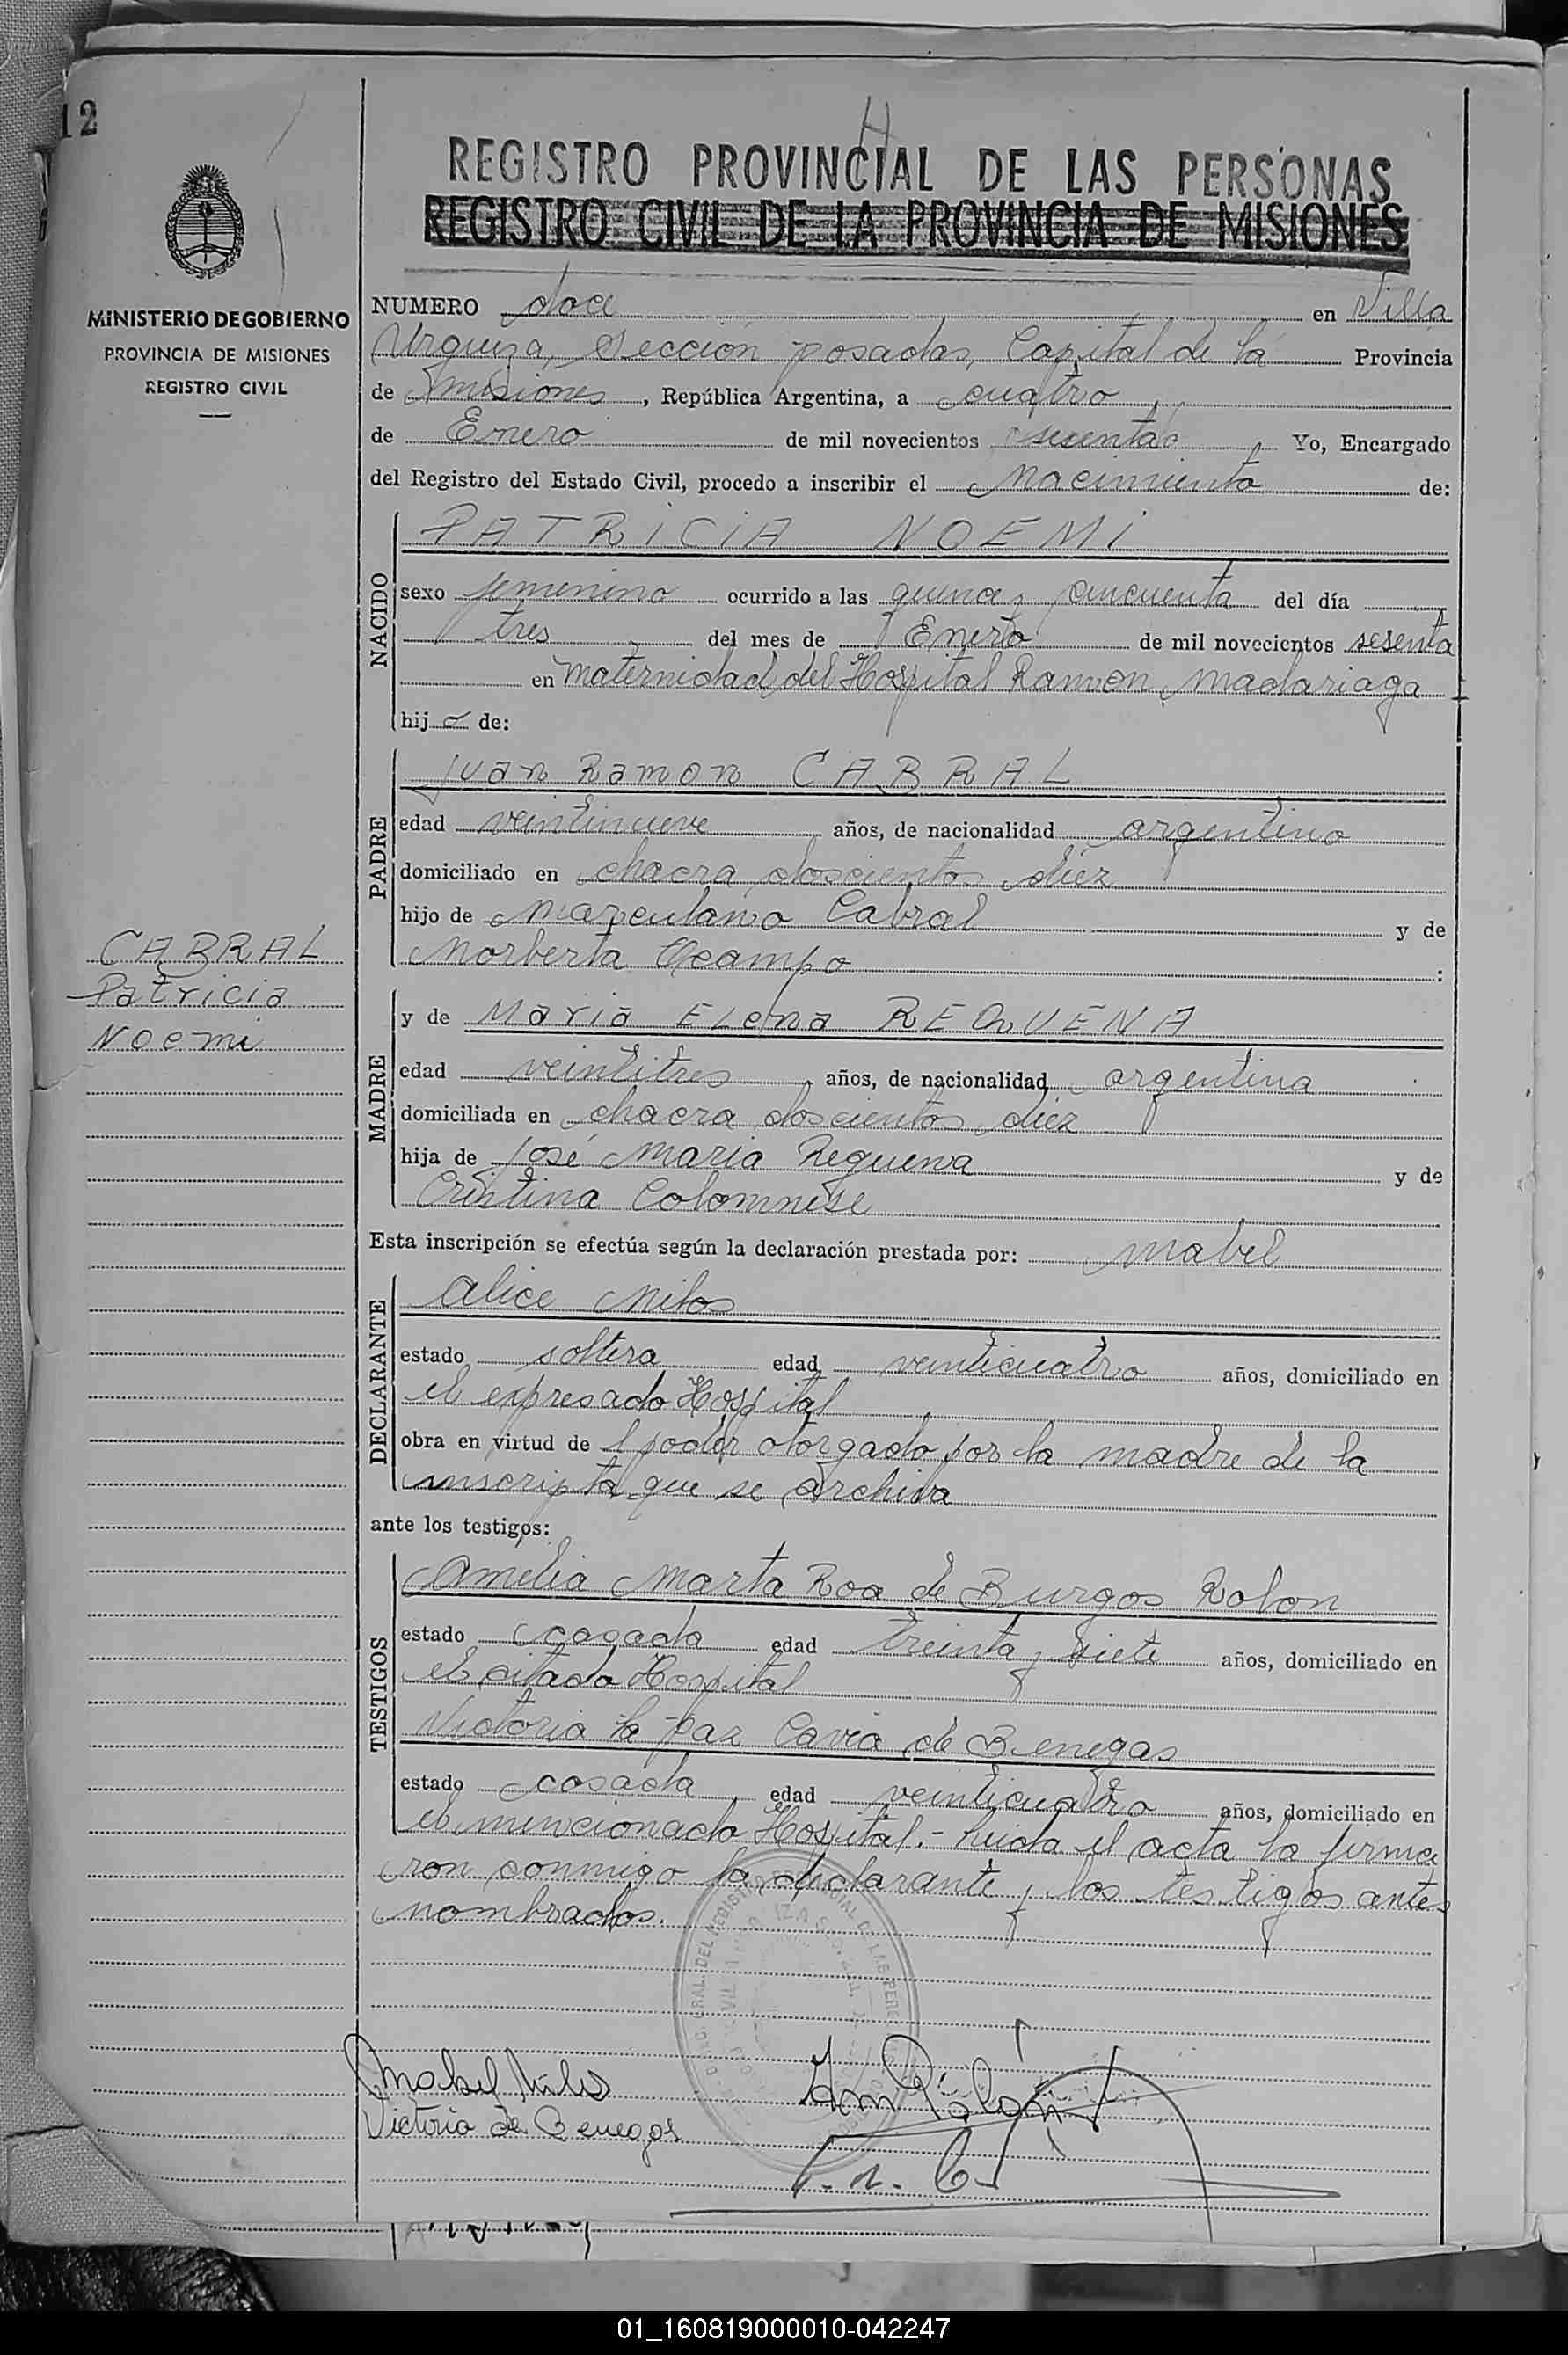 12
REGISTRO PROVINCIAL DE LAS PERSONAS
REGISTRO CIVIL DE LA PROVINCIA DE MISIONES
MINISTERIO DE GOBIERNO
PROVINCIA DE MISIONES
REGISTRO CIVIL
NUMERO doce en Villa
Urquiza, Sección posadas, Capital de la Provincia
de misiones, República Argentina, a cuatro
de Enero de mil novecientos sesenta, Yo, Encargado
del Registro del Estado Civil, procedo a inscribir el Nacimiento de:
NACIDO
PATRICIA NOEMI
sexo femenino ocurrido a las quince y cincuenta del día
tres del mes de Enero de mil novecientos sesenta
en maternidad del Hospital Ramon Madariaga
hija de:
PADRE
Juan Ramon CABRAL
edad veintinueve años, de nacionalidad argentino
domiciliado en chacra doscientos diez
hijo de Cabral y de
Norberta Ocampo :
CABRAL
Patricia
Noemi
MADRE
y de Maria Elena REQUENA
edad veintitres, años, de nacionalidad argentina
domiciliada en chacra doscientos diez
hija de José Maria Requena y de
Cristina Colomnese
Esta inscripción se efectúa según la declaración prestada por: Mabel
DECLARANTE
Alice Milos
estado soltera edad veinticuatro años, domiciliado en
el expresado Hospital
obra en virtud de l poder otorgado por la madre de la
inscripta que se archiva
ante los testigos:
TESTIGOS
Amelia Marta Roa de Burgos Rolon
estado casada edad treinta y siete años, domiciliado en
el citado Hospital
Victoria la paz Cavia de Benegas
estado casada, edad veinticuatro años, domiciliado en
el mencionado Hospital.- Leida el acta la firma
ron conmigo la declarante y los testigos antes
nombrados.
Mabel Milos
Victoria de Benegas
01_160819000010-042247